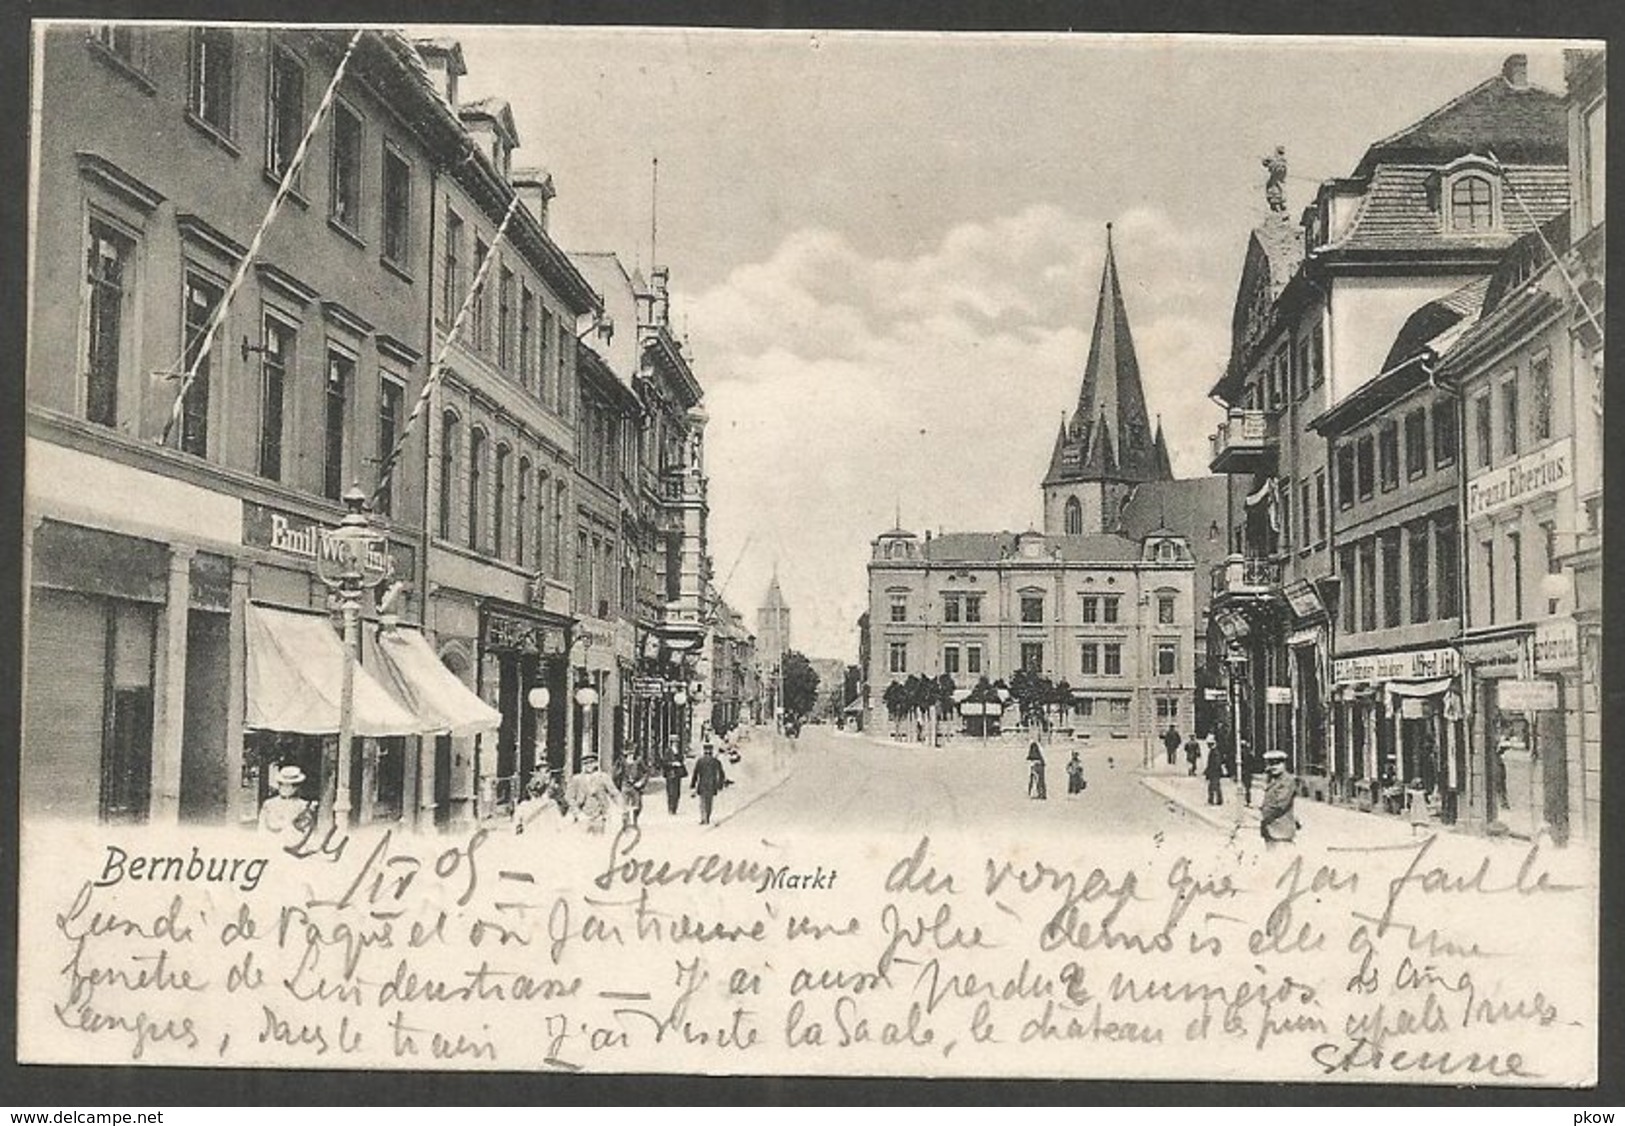 Emil
Franz Eberius
Alfred
Bernburg
Markt
24/IV 05 – Souvenir du voyage que j'ai fait le
Lundi de Paques et où j'ai trouvé une jolie demoiselle à une
fenêtre de Lindenstrasse – J'ai aussi perdu 2 numéros des Cinq
Langues, dans le train J'ai visité la Saale, le château et les principales rues.
Etienne
www.delcampe.net
pkow